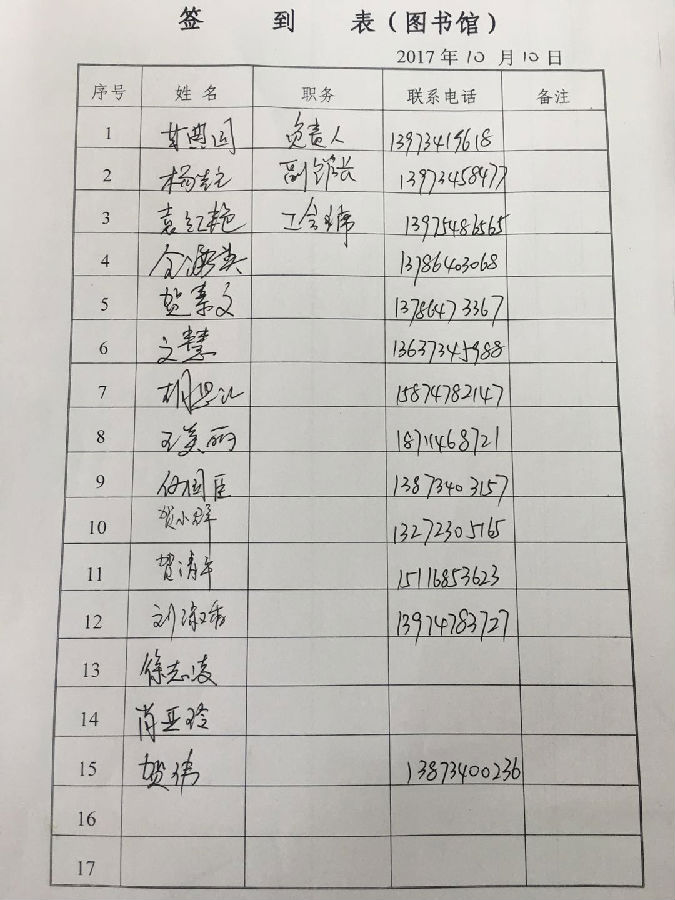 签 到 表（图书馆）
2017年10月10日
序号 姓名 职务 联系电话 备注
1 负责人 13973419618
2 副馆长 13973458477
3 袁红艳 工会主席 13975486565
4 13786403068
5 贺素文 13786473367
6 文慧 13637345988
7 15874782147
8 王美丽 18711468721
9 何国臣 13873403157
10 贺小群 13272305165
11 贺清平 15116853623
12 刘淑香 13974783727
13 徐志凌
14 肖亚玲
15 贺伟 13873400236
16
17